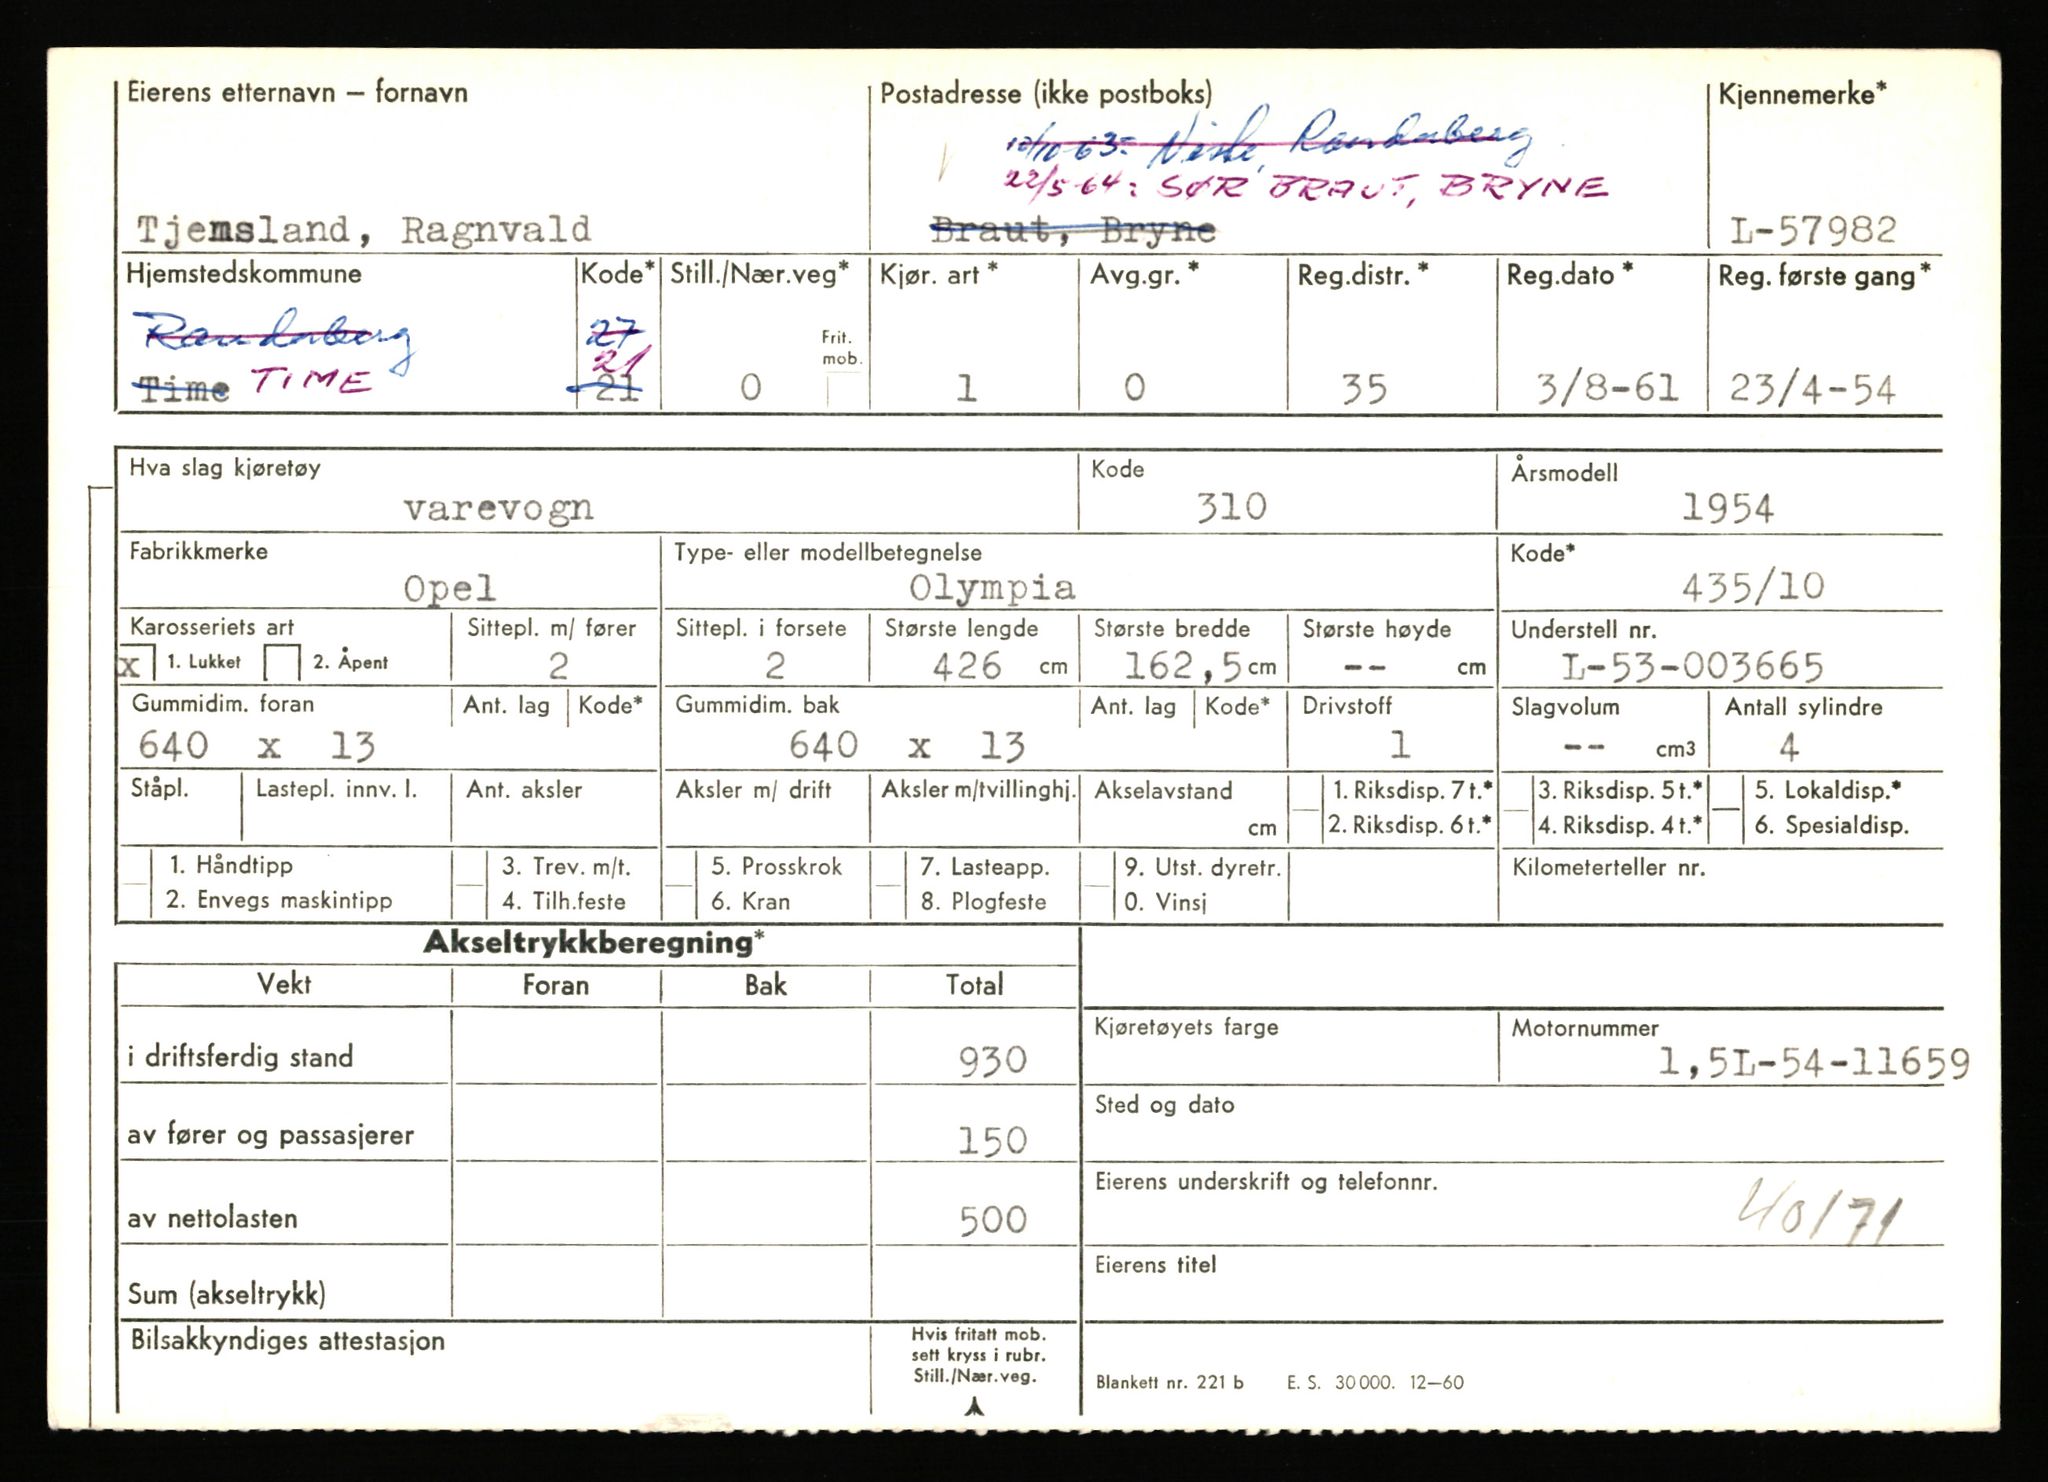 Eierens etternavn – fornavn Postadresse (ikke postboks) Kjennemerke*
10/10-63: Randaberg
22/5-64: SØR BRAUT, BRYNE
Tjemsland, Ragnvald Braut, Bryne L-57982
Hjemstedskommune Kode* Still./Nær.veg* Kjør. art* Avg.gr.* Reg.distr.* Reg.dato* Reg. første gang*
Randaberg 27 Frit.
21 mob.
Time TIME 21 0 1 0 35 3/8-61 23/4-54
Hva slag kjøretøy Kode Årsmodell
varevogn 310 1954
Fabrikkmerke Type- eller modellbetegnelse Kode*
Opel Olympia 435/10
Karosseriets art Sittepl. m/ fører Sittepl. i forsete Største lengde Største bredde Største høyde Understell nr.
x 1. Lukket 2. Åpent 2 2 426 cm 162,5 cm -- cm L-53-003665
Gummidim. foran Ant. lag Kode* Gummidim. bak Ant. lag Kode* Drivstoff Slagvolum Antall sylindre
640 x 13 640 x 13 1 -- cm3 4
Ståpl. Lastepl. innv. l. Ant. aksler Aksler m/ drift Aksler m/tvillinghj. Akselavstand 1. Riksdisp. 7 t.* 3. Riksdisp. 5 t.* 5. Lokaldisp.*
cm 2. Riksdisp. 6 t.* 4. Riksdisp. 4 t.* 6. Spesialdisp.
1. Håndtipp 3. Trev. m/t. 5. Prosskrok 7. Lasteapp. 9. Utst. dyretr. Kilometerteller nr.
2. Envegs maskintipp 4. Tilh.feste 6. Kran 8. Plogfeste 0. Vinsj
Akseltrykkberegning*
Vekt Foran Bak Total
Kjøretøyets farge Motornummer
i driftsferdig stand 930 1,5L-54-11659
Sted og dato
av fører og passasjerer 150
Eierens underskrift og telefonnr.
av nettolasten 500 40/71
Eierens titel
Sum (akseltrykk)
Bilsakkyndiges attestasjon Hvis fritatt mob.
sett kryss i rubr.
Still./Nær.veg.
Blankett nr. 221 b E. S. 30 000. 12–60